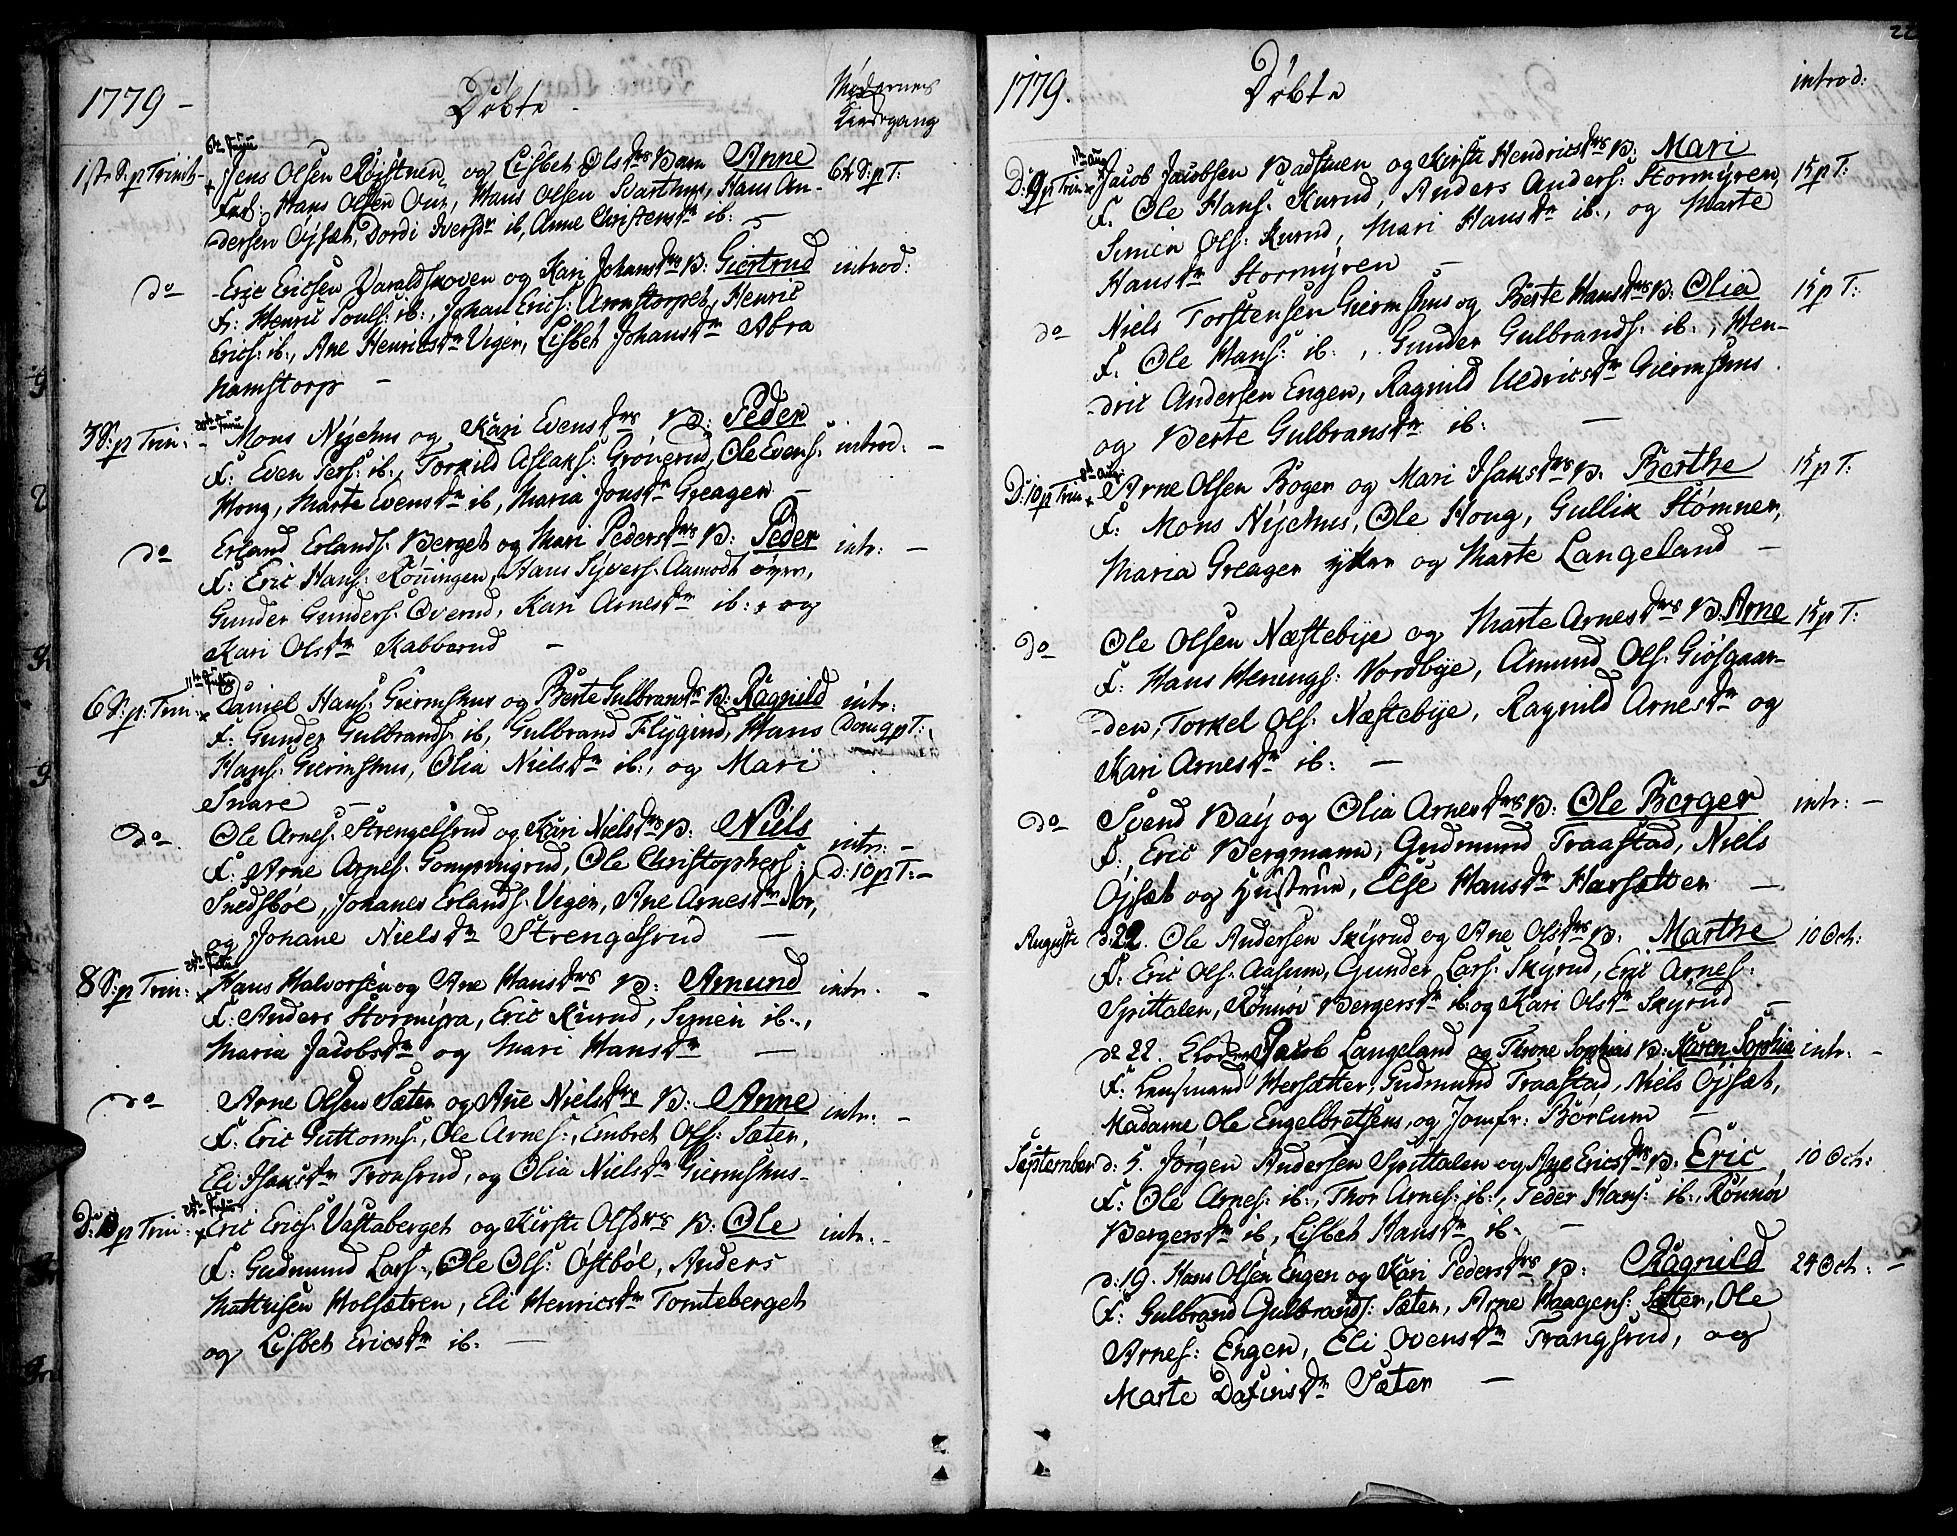 1779 –
Døbte –
Mødernes
Kirkegang
6te Junii
1ste S: p Trinit: – Jens Olsen Røjstuen og Lisbet Olsdrs Barn Anne 6te S: p T:
Fad: Hans Olsen Oun, Hans Olsen Svarthus, Hans An-
dersen Øjset, Dordi Iversdr ib, Anne Christensdr ib: –
do – Eric Ericsen Varaldskoven og Kari Johansdrs B: Giertrud introd:
F: Henric Pouls: ib:, Johan Erics: Arnstorpet, Henric
Erics: ib., Ane Henricsdr Viger, Lisbet Johansdr Abra
hamstorp –
20de Junii
3 S: p Trin: – Mons Nÿehus og Kari Evensdrs B: Peder introd: –
F: Even Pers: ib:, Torkild Aslaks: Grønerud, Ole Evens:
Hong, Marte Evensdr ib, Maria Jonsdr Greager –
do Erland Erlands: Berget og Mari Pedersdrs B: Peder intr: –
F: Eric Hans: Rønningen, Hans Sÿvers: Aamodt øvre,
Gunder Gunders: Overud, Kari Arnesdr ib: og
Kari Olsdr Kabberud –
11te Julii
6 S: p: Trin: Daniel Hans: Giermshus og Berte Gulbransdrs B: Ragnild intr:
F: Gunder Gulbrands: ib, Gulbrand Flÿgind, Hans Dom 9 p T:
Hans: Giermshus, Olia Nielsdr ib:, og Mari
Snare –
do Ole Arnes: Strengelsrud og Kari Nielsdrs B: Niels intr: –
F: Arne Arnes: Gompingrud, Ole Christophers: D: 10 p T: –
Snedsbøl, Johanes Erlands: Viger, Ane Arnesdr Nor,
og Johane Nielsdr Strengelsrud –
25de Julii
8 S: p Trin: Hans Halvorsen og Ane Hansdrs B: Amund intr. –
F: Anders Stormÿra, Eric Kurud, Simen ib:,
Maria Jacobsdr og Mari Hansdr –
do Arne Olsen Sæter og Ane Nielsdrs B: Anne intr: –
F: Eric Guttorms:, Ole Arnes:, Embret Ols: Sæter,
Eli Isaksdr Tronsrud, og Olia Nielsdr Giermshus –
25de Julii
D: p Trin: Eric Erics: Vastaberget og Kirsti Olsdrs B: Ole intr: –
F: Gudmund Lars:, Ole Ols: Østbøl, Anders
Mathisen Holsætren, Eli Henricsdr Tomteberget
og Lisbet Ericsdr ib. –
22
1779.
Døbte
introd:
1ste Aug
D: 9 p Trin Jacob Jacobsen Badstuen og Kirsti Hendricsdrs B: Mari 15 p T:
F: Ole Hans: Kurud, Anders Anders: Stormÿren,
Simen Ols: Kurud, Mari Hansdr ib:, og Marte
Hansdr Stormÿren –
do Niels Torstensen Giermshus og Berte Hansdrs B: Olia 15 p T:
F: Ole Hans: ib:, Gunder Gulbrands: ib:, Hen-
dric Andersen Engen, Ragnild Uldricsdr Giermshus
og Berte Gulbransdr ib: –
8de Aug:
D: 10 p Trin Arne Olsen Bogen og Mari Isaksdrs B: Berthe 15 p T:
F: Mons Nÿehus, Ole Hong, Gullik Stømner,
Maria Greager ytre og Marte Langeland –
do Ole Olsen Næstebÿe og Marte Arnesdrs B: Arne 15 p T:
F: Hans Henings: Nordbÿe, Amund Ols: Giøsgaar-
den, Torkel Ols: Næstebÿe, Ragnild Arnesdr og
Kari Arnesdr ib: –
do Svend Baÿ og Olia Arnesdrs B: Ole Berger intr: –
F: Eric Bergmann, Gudmund Traastad, Niels
Øjset og Hustrue, Else Hansdr Harsætter –
Augusti d: 22. Ole Andersen Skÿrud og Ane Olsdrs B: Marthe 10 Oct:
F: Eric Ols: Aasum, Gunder Lars: Skÿrud, Eric Arnes:
Spittalen, Rønnov Bergersdr ib: og Kari Olsdr Skÿrud –
do 22. Jacob Langeland og Trone Sophias B: Karen Sophia intr: –
F: Lensmand Hersætter, Gudmund Traastad, Niels Øjset,
Madame Ole Engelbretsens, og Jomfr: Børlum –
September d: 5. Jørgen Andersen Spittalen og Aye Ericsdrs B: Eric 10 Oct:
F: Ole Arnes: ib:, Thor Arnes: ib:, Peder Hans: ib:, Rønnov
Bergersdr ib, Lisbet Hansdr ib. –
d: 19. Hans Olsen Engen og Kari Pedersdrs B: Ragnild 24 Oct: –
F: Gulbrand Gulbrands: Sæter, Arne Haagens: Sæter, Ole
Arnes: Engen, Eli Ovensdr Trangsrud, og
Marte Dafinsdr Sæter –